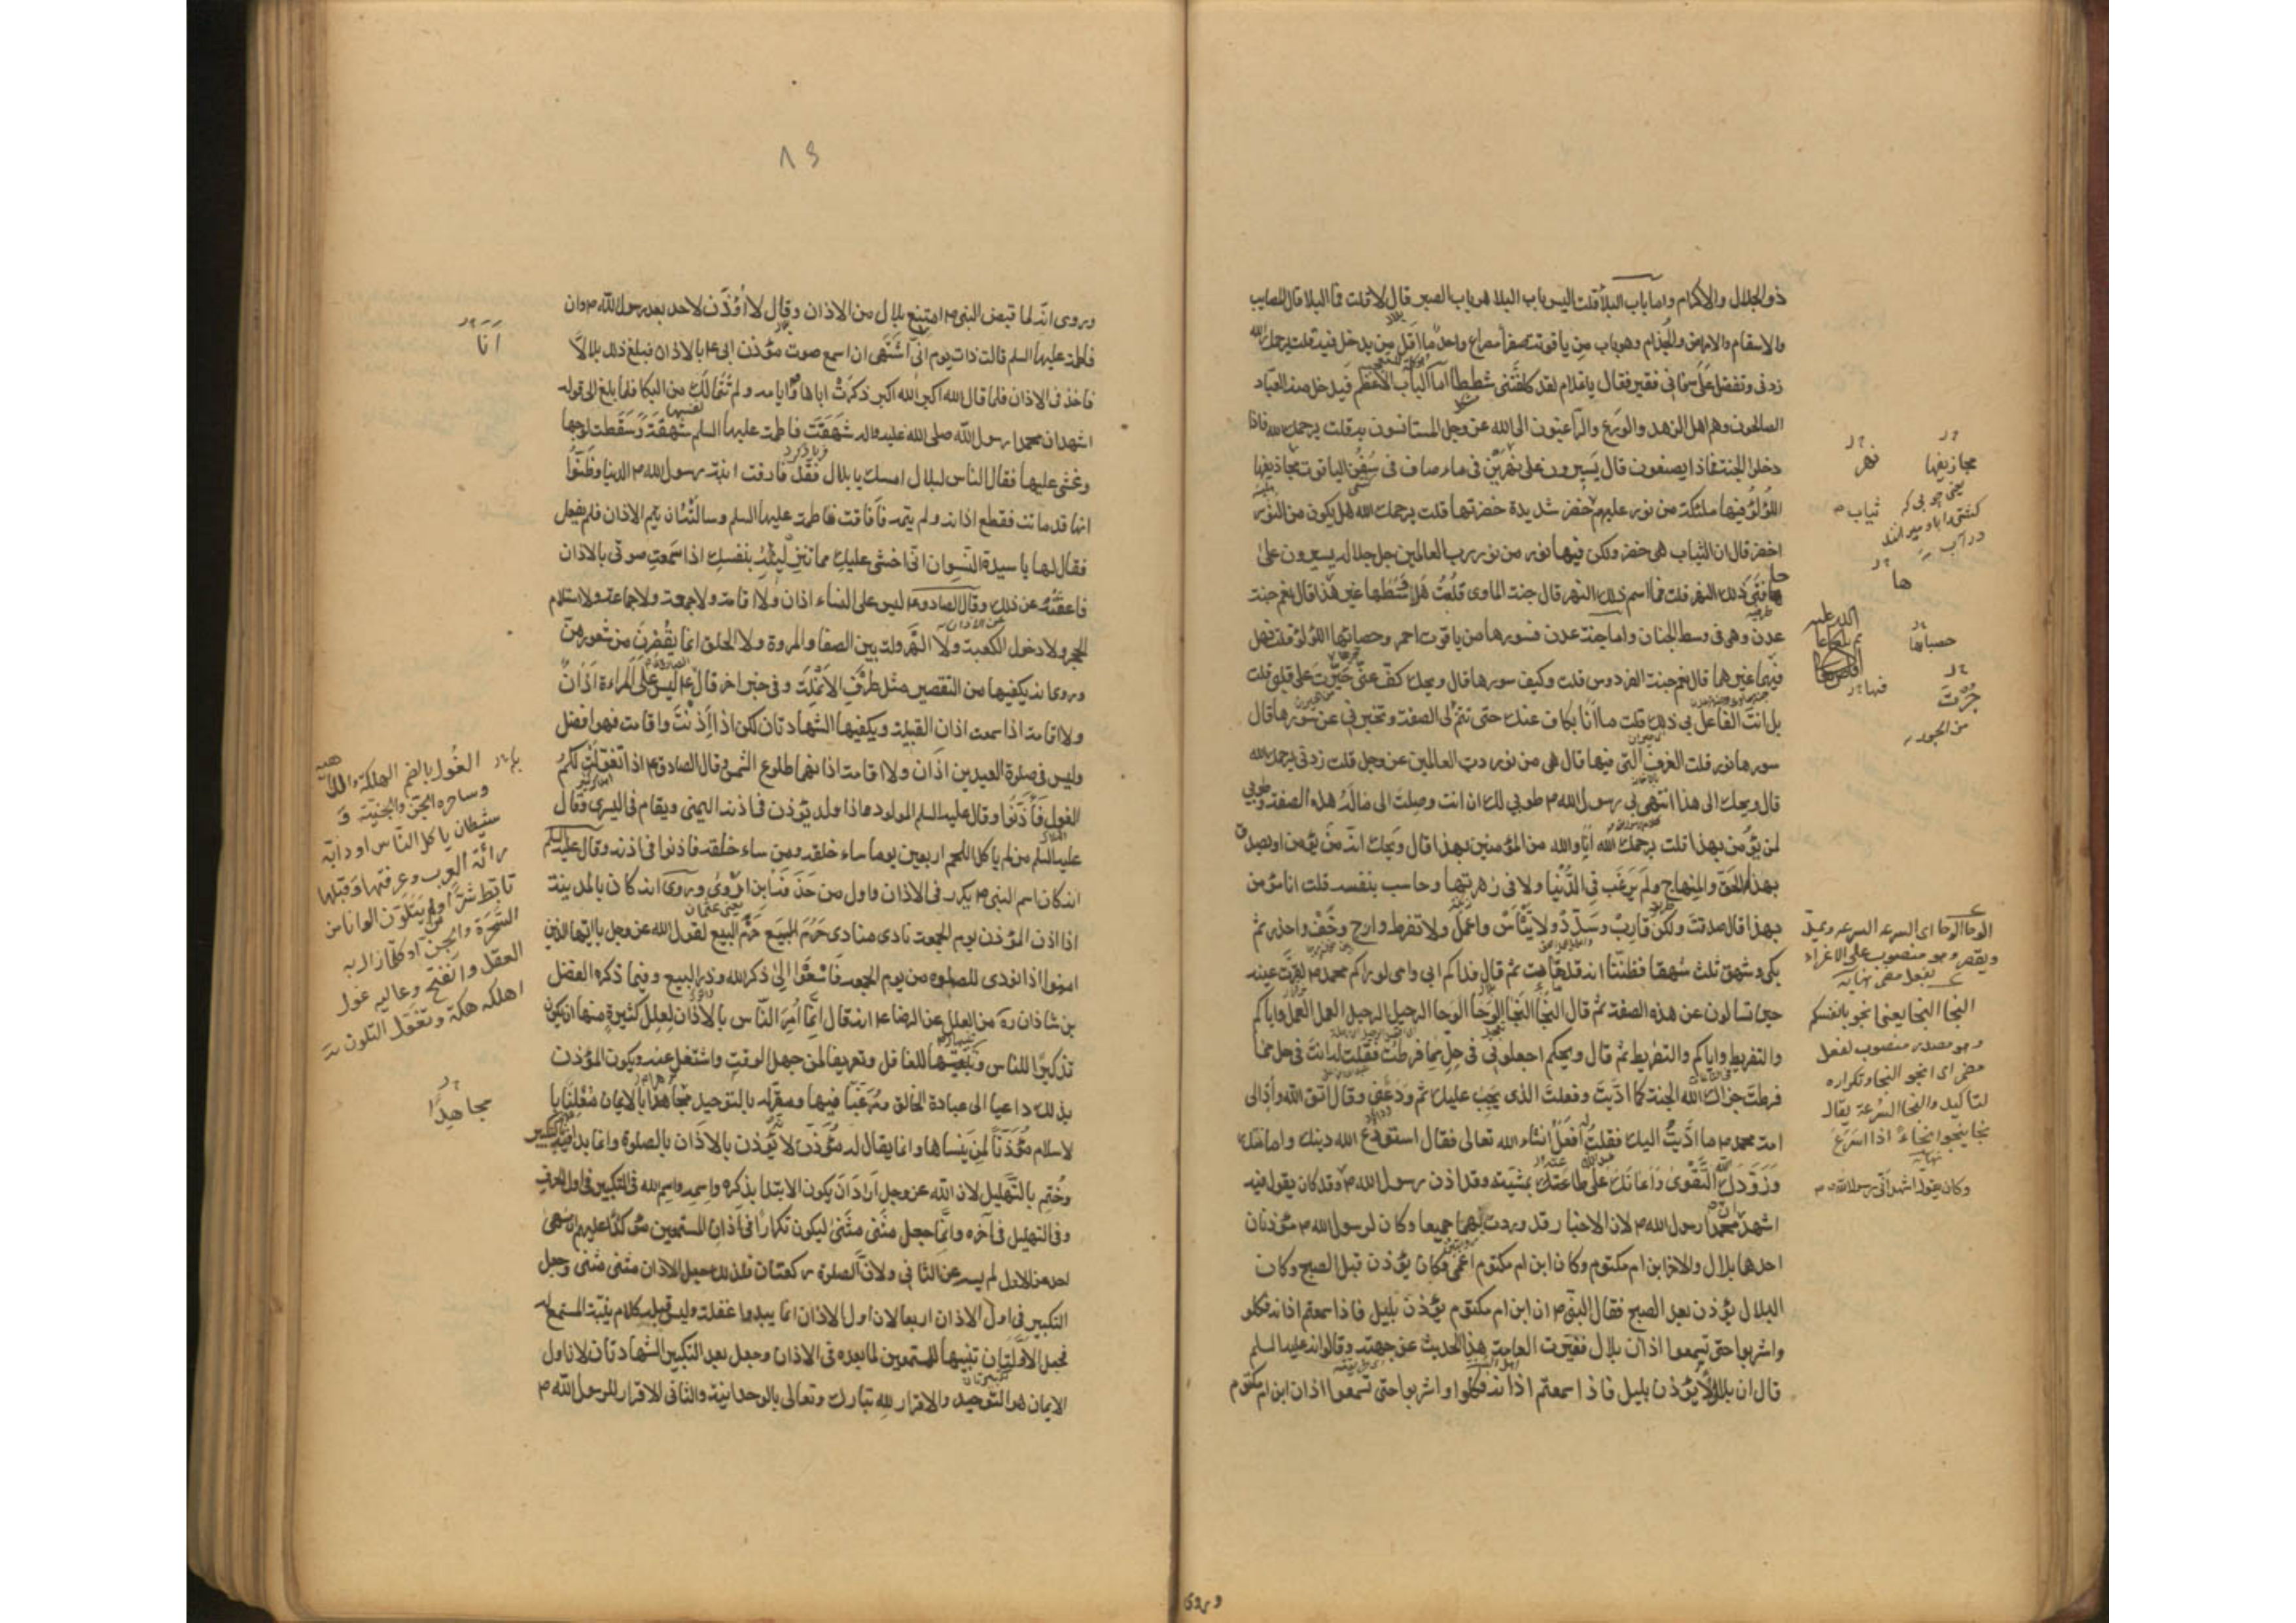 ذو الجلال والاكرام واما باب البلاء قلت اليس باب البلا هو باب الصبر قال لا قلت فما البلا قال المصايب
والاسقام والامراض والجذام وهو باب من ياقوتة صفرا مصراع واحد ما اقل من يدخل فيه قلت يرحمك الله
زدنى وتفضل علىّ فانى فقير فقال يا غلام لقد كلفتنى شططا اما الباب الاعظم فيدخل منه العباد
الصالحون وهم اهل الزهد والورع والراغبون الى الله عز وجل المستانسون به قلت يرحمك الله فاذا
دخلوا الجنة فماذا يصنعون قال يسيرون على نهرين فى ماء صاف فى سفن الياقوت مجاذيفها
اللؤلؤ فيها ملئكة من نور عليهم خضر شديدة خضرتها قلت يرحمك الله هل يكون من النور
اخضر قال ان الثياب هى خضر ولكن فيها نور من نور رب العالمين جل جلاله يسيرون على
حافتى ذلك النهر قلت فما اسم ذلك النهر قال جنة الماوى قلت هل وسطها غير هذا قال نعم جنة
عدن وهى فى وسط الجنان واما جنة عدن فسورها من ياقوت احمر وحصائها اللؤلؤ قلت فهل
فيها غيرها قال نعم جنة الفردوس قلت وكيف سورها قال ويحك كف عنى حيرت على قلبى قلت
بل انت الفاعل بى ذلك قلت ما انا بكاف عنك حتى تتم لى الصفة وتخبرنى عن سورها قال
سورها نور قلت الغرف التى فيها قال هى من نور رب العالمين عز وجل قلت زدنى يرحمك الله
قال ويحك الى هذا انتهى بى رسول الله م طوبى لك ان انت وصلت الى ماله هذه الصفة وطوبى
لمن يؤمن بهذا قلت يرحمك الله انا والله من المؤمنين بهذا قال ويحك انه من يؤمن او يصدق
بهذا الحق والمنهاج ولم يرغب فى الدنيا ولا فى زهرتها وحاسب بنفسه قلت انا مؤمن
بهذا قال صدقت ولكن قارب وسدد ولا تيأس واعمل ولا تفرط وارج وخف واحذر ثم
بكى وشهق ثلث شهقا فظننا انه قد مات ثم قال فداكم ابى وامى لو راكم محمد م لقرت عينه
حين تسالون عن هذه الصفة ثم قال النجا النجا الوحا الوحا الرحيل الرحيل العمل العمل واياكم
والتفريط واياكم والتفريط ثم قال ويحكم اجعلونى فى حل مما فرطت فقلت له انت فى حل مما
فرطت جزاك الله الجنة كما اديت وفعلت الذى يجب عليك ثم ودعنى وقال اتق الله واد الى
امة محمد م ما اديت اليك فقلت افعل انشاء الله تعالى فقال استودع الله دينك وامانتك
وزودك التقوى واعانك على طاعته بمشيته وقد اذن رسول الله م وقد كان يقول فيه
اشهد ان محمدا رسول الله م لان الاخبار قد وردت بهما جميعا وكان لرسول الله م مؤذنان
احدها بلال والاخر ابن ام مكتوم وكان ابن ام مكتوم اعمى فكان يؤذن قبل الصبح وكان
البلال يؤذن بعد الصبح فقال النبى م ان ابن ام مكتوم يؤذن بليل فاذا سمعتم اذانه فكلوا
واشربوا حتى تسمعوا اذان بلال فغيرت العامة هذا الحديث عن جهته وقالوا انه عليه السلم
قال ان بلالا يؤذن بليل فاذا سمعتم اذانه فكلوا واشربوا حتى تسمعوا اذان ابن ام مكتوم
مجازيفها
يعنى چوبى كه
كشتى را باو ميرانند
در آب
نهر
ثياب
ها
حصباها
فيها
الوحا الوحا اى السرعه السرعه ويمد
ويقصر وهو منصوب على الاغراء
بفعل مضمر نهايه
النجا النجا يعنى انجو بانفسكم
وهو مصدر منصوب لفعل
مضمر اى انجو النجا وتكراره
لتاكيد والنجا السرعة يقال
نجا ينجوا نجاء اذا اسرع
نهايه
وكان يقول اشهد انى رسول الله م
وروى
٨٩
وروى انه لما قبض النبى م امتنع بلال من الاذان وقال لا اؤذن لاحد بعد رسول الله م وان
فاطمة عليها السلم قالت ذات يوم انى اشتهى ان اسمع صوت مؤذن ابى ع بالاذان فبلغ ذلك بلالا
فاخذ فى الاذان فلما قال الله اكبر الله اكبر ذكرت اباها وايامه ولم تتمالك من البكا فلما بلغ الى قوله
اشهد ان محمدا رسول الله صلى الله عليه واله شهقت فاطمة عليها السلم شهقة وسقطت لوجهها
وغشى عليها فقال الناس لبلال امسك يا بلال فقد فارقت ابنة رسول الله م الدنيا وظنوا
انها قد ماتت فقطع اذانه ولم يتمه فافاقت فاطمة عليها السلم وسالته ان يتم الاذان فلم يفعل
فقال لها يا سيدة النسوان انى اخشى عليك مما تنزلينه بنفسك اذا سمعت صوتى بالاذان
فاعفته عن ذلك وقال الصادق ع ليس على النساء اذان ولا اقامة ولا جمعة ولا جماعة ولا استلام
الحجر ولا دخول الكعبة ولا الهرولة بين الصفا والمروة ولا الحلق انما يقصرن من شعورهن
وروى انه يكفيها من التقصير مثل طرف الانملة وفى خبر اخر قال ع ليس على المراة اذان
ولا اقامة اذا سمعت اذان القبيلة ويكفيها الشهادتان لكن اذا اذنت واقامت فهو افضل
وليس فى صلوة العيدين اذان ولا اقامة اذانهما طلوع الشمس وقال الصادق ع اذا تغولت لكم
الغول فاذنوا وقال عليه السلم المولود اذا ولد يؤذن فى اذنه اليمنى ويقام فى اليسرى وقال
عليه السلم من لم ياكل اللحم اربعين يوما ساء خلقه ومن ساء خلقه فاذنوا فى اذنه وقال عليه السلم
انه كان اسم النبى م يكرر فى الاذان واول من حذفه ابن اروى وروى انه كان بالمدينة
اذا اذن المؤذن يوم الجمعة نادى منادى حرم البيع حرم البيع لقول الله عز وجل يا ايها الذين
امنوا اذا نودى للصلوه من يوم الجمعه فاسعوا الى ذكر الله وذروا البيع وفيما ذكره الفضل
بن شاذان ره من العلل عن الرضا ع انه قال انما امر الناس بالاذان لعلل كثيرة منها ان يكون
تذكيرا للناس وتنبيها للغافل وتعريفا لمن جهل الوقت واشتغل عنه ويكون المؤذن
بذلك داعيا الى عبادة الخالق ومرغبا فيها ومقرا له بالتوحيد مجاهرا بالايمان معلنا با
لاسلام مؤذنا لمن ينساها وانما يقال له مؤذن لانه يؤذن بالاذان بالصلوة وانما بدا فيه بالتكبير
وختم بالتهليل لان الله عز وجل اراد ان يكون الابتدا بذكره واسمه واسم الله فى التكبير فى اول الحرف
وفى التهليل فى آخره وانما جعل مثنى مثنى ليكون تكرارا فى اذان المستمعين مؤكدا عليهم ان سهى
احد عن الاول لم يسه عن الثانى ولان الصلوة ركعتان فلذلك جعل الاذان مثنى مثنى وجعل
التكبير فى اول الاذان اربعا لان اول الاذان انما يبدوا غفلة وليس قبله كلام ينبه المستمع له
فجعل الاوليان تنبيها للمستمعين لما بعده فى الاذان وجعل بعد التكبير الشهادتان لان اول
الايمان هو التوحيد والاقرار لله تبارك وتعالى بالوحدانية والثانى الاقرار للرسول الله م
انا
الغول بالضم الهلكة والداهيه
وساحره الجن والجنية و
شيطان ياكل الناس او دابة
راتها العرب وعرفتها وقتلها
تابط شرا
العقل وانفتح وعاليه غول
اهلكه هلكة وتغول التلون
مجاهدا